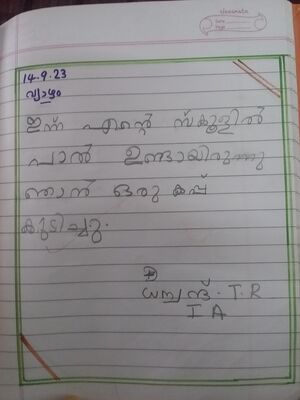 classmate
Date
Page
14.9.23
വ്യാഴം
ഇന്ന് എന്റെ സ്കൂളിൽ
പാൽ ഉണ്ടായിരുന്നു
ഞാൻ ഒരു കപ്പ്
കുടിച്ചു.
T.R
I A